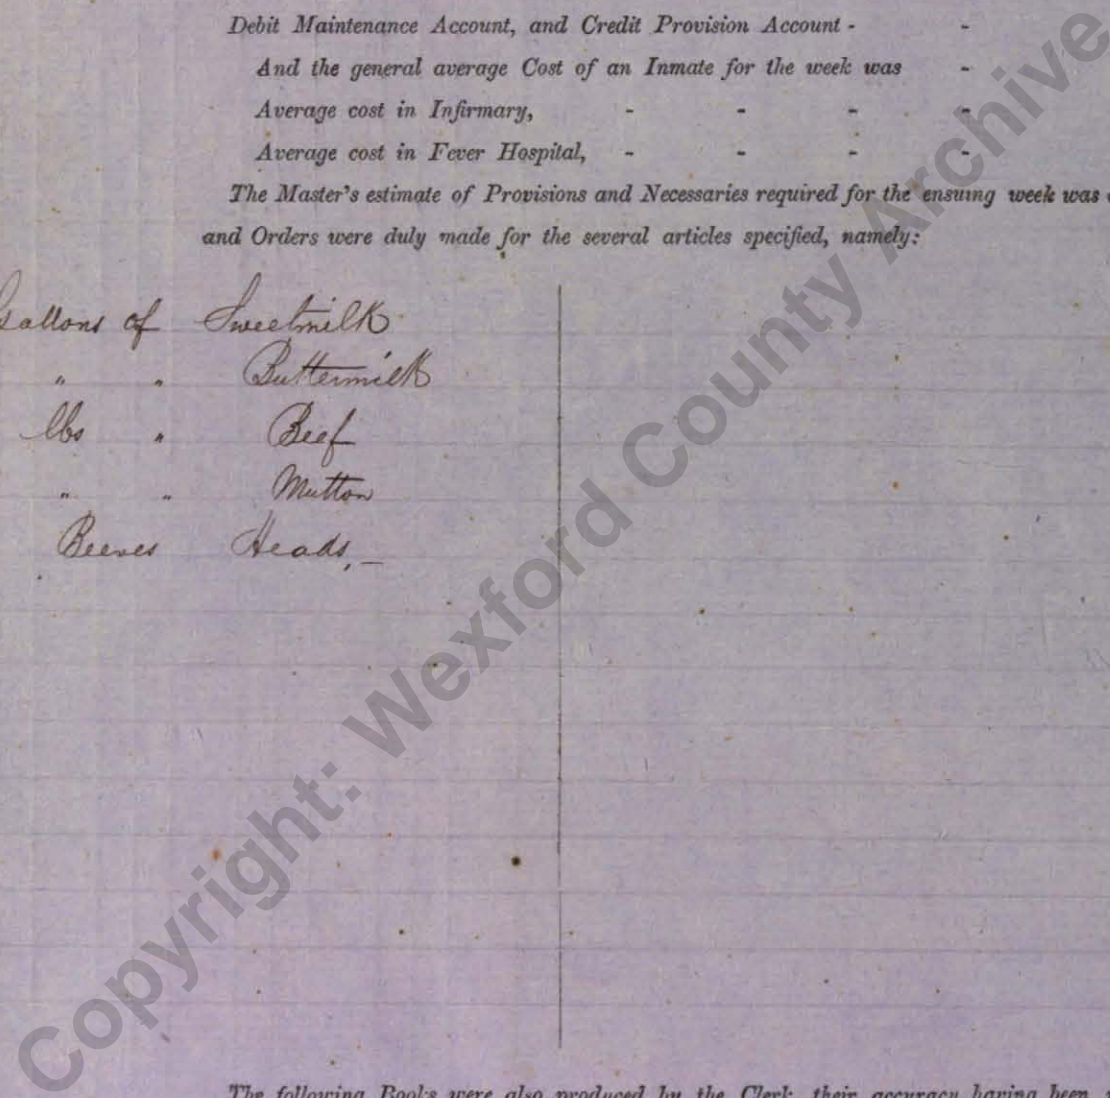 Debit Maintenance Account, and Credit Provision Account - -
And the general average Cost of an Inmate for the week was -
Average cost in Infirmary, - - - -
Average cost in Fever Hospital, - - - -
The Master's estimate of Provisions and Necessaries required for the ensuing week was
and Orders were duly made for the several articles specified, namely:
Gallons of Sweetmilk
" " Buttermilk
lbs " Beef
" " Mutton
Beeves Heads, –
The following Books were also produced by the Clerk, their accuracy having been
Copyright: Wexford County Archive